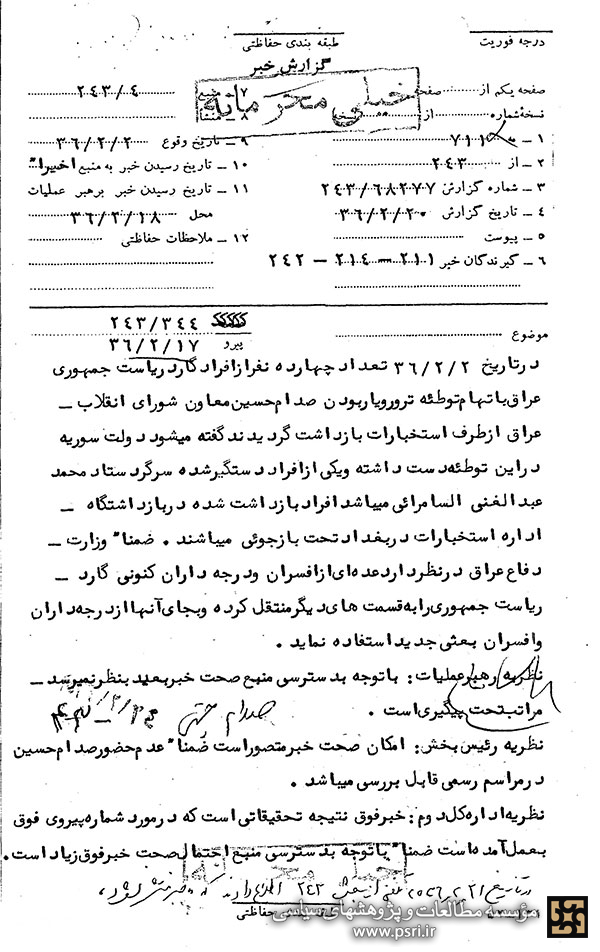 درجه فوریت
طبقه بندی حفاظتی
گزارش خبر
خیلی محرمانه
صفحه یکم از صفحه
نسخه شماره از
۷ـ ۲۴۳/۴
۸ـ
۱ـ
۲ـ از ۲۴۳
۳ـ شماره گزارش ۲۴۳/۶۸۲۷۷
۴ـ تاریخ گزارش ۳۶/۲/۲۰
۵ـ پیوست
۶ـ گیرندگان خبر ۲۱۱ـ ۲۱۴ ـ ۲۴۲
۹ـ تاریخ وقوع ۳۶/۲/۲
۱۰ـ تاریخ رسیدن خبر به منبع اخیراً
۱۱ـ تاریخ رسیدن خبر برهبر عملیات
محل ۳۶/۲/۱۸
۱۲ـ ملاحظات حفاظتی
موضوع
۲۴۳/۳۴۴
پیرو ۳۶/۲/۱۷
در تاریخ ۳۶/۲/۲ تعداد چهارده نفر از افراد گارد ریاست جمهوری
عراق باتهام توطئه ترور و یا ربودن صدام حسین معاون شورای انقلاب ـ
عراق از طرف استخبارات بازداشت گردیدند گفته میشود دولت سوریه
در این توطئه دست داشته و یکی از افراد دستگیر شده سرگرد ستاد محمد
عبدالغنی السامرائی میباشد افراد بازداشت شده در بازداشتگاه ـ
اداره استخبارات در بغداد تحت بازجوئی میباشند . ضمناً وزارت ـ
دفاع عراق در نظر دارد عده‌ای از افسران و درجه داران کنونی گارد ـ
ریاست جمهوری را به قسمت های دیگر منتقل کرده و بجای آنها از درجه داران
و افسران بعثی جدید استفاده نماید .
نظریه رهبر عملیات: باتوجه بدسترسی منبع صحت خبر بعید بنظر نمیرسد ـ
مراتب تحت پیگیری است .
نظریه رئیس بخش: امکان صحت خبر متصور است ضمناً عدم حضور صدام حسین
در مراسم رسمی قابل بررسی میباشد .
نظریه اداره کل دوم: خبر فوق نتیجه تحقیقاتی است که در مورد شماره پیروی فوق
بعمل آمده است ضمناً باتوجه بدسترسی منبع احتمال صحت خبر فوق زیاد است .
خیلی محرمانه
حفاظتی
مؤسسه مطالعات و پژوهشهای سیاسی
www.psri.ir